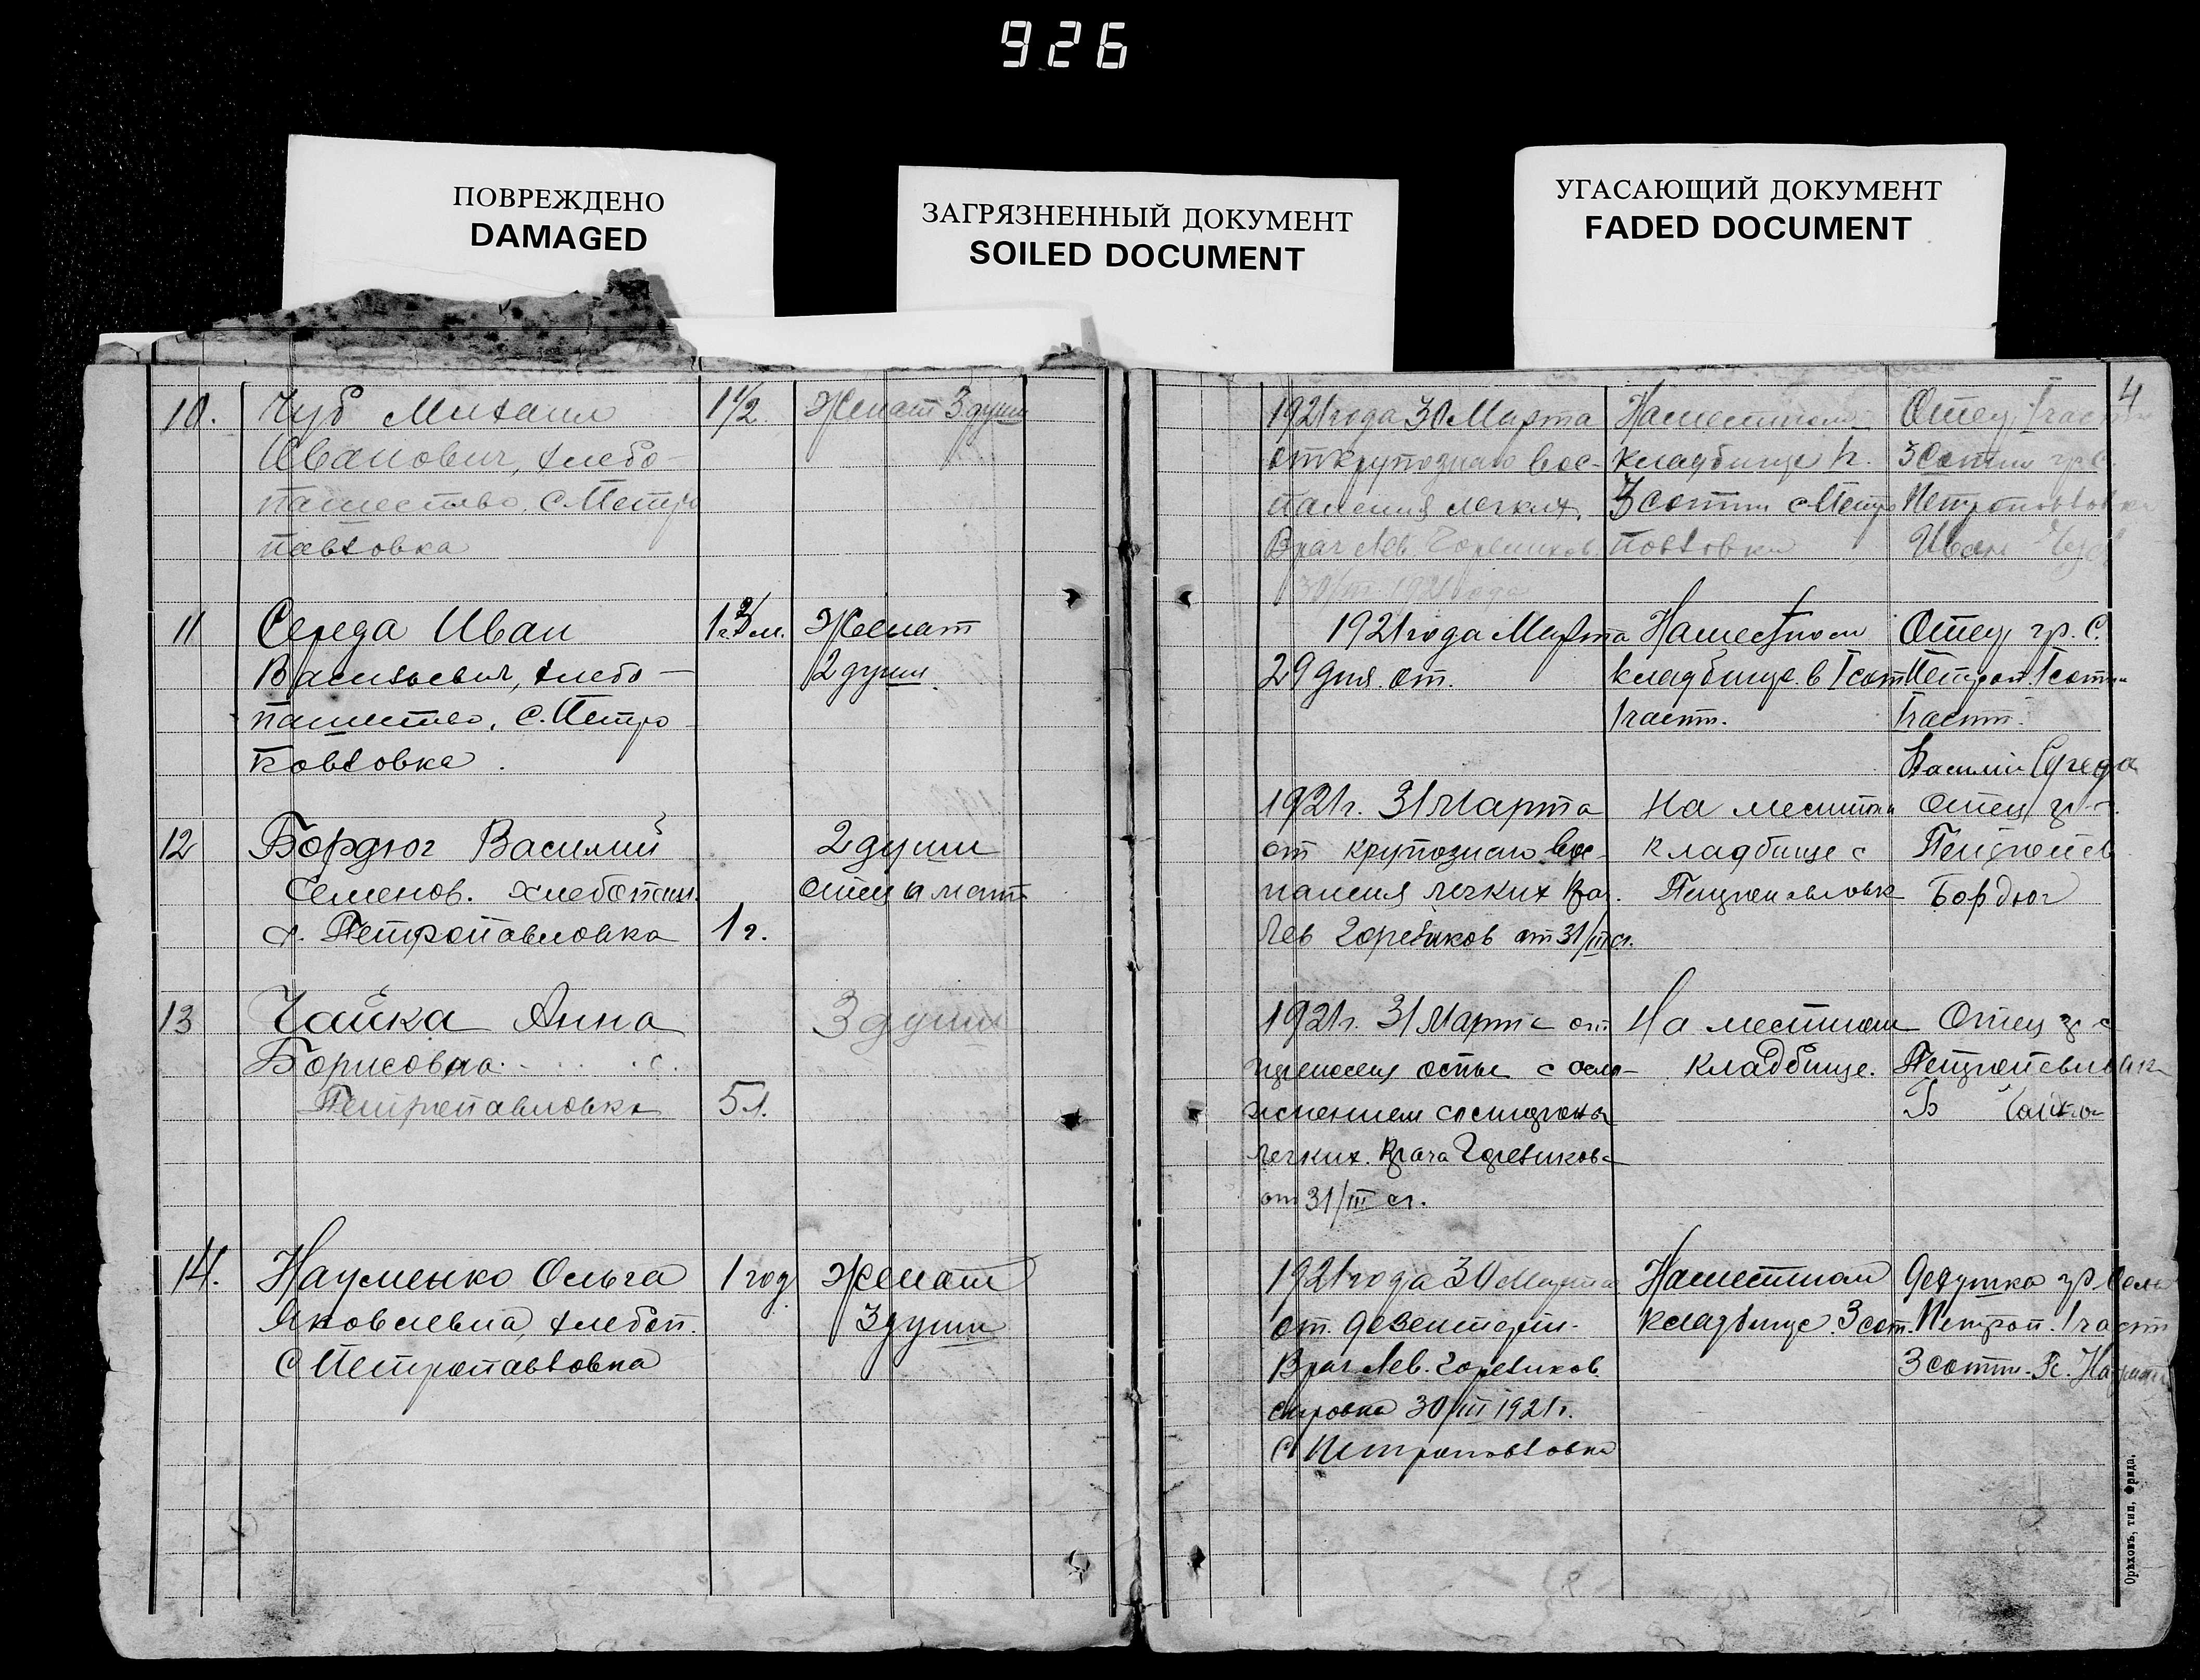 926
ПОВРЕЖДЕНО
DAMAGED
ЗАГРЯЗНЕННЫЙ ДОКУМЕНТ
SOILED DOCUMENT
УГАСАЮЩИЙ ДОКУМЕНТ
FADED DOCUMENT
10. Чуб Михаил
Иванович, хлебо-
пашество, с. Петро
павловка
1 1/2.
Женат 3 души
11 Середа Иван
Васильевич, хлебо-
пашество, с. Петро
повловка.
Женат
2 души.
12 Бордюг Василий
Семенов. хлебопаш.
с. Петропавловка
1 г.
2 души
отец и мать
13 Чайка Анна
Борисовна
с.
Петропавловка
5 л.
3 души
14. Науменко Ольга
Яковлевна, хлебоп.
с Петропавловка
1 год
Женат
3 души
4
1921 года 30 Марта
от крупознаго вос-
паления легких.
Врач Лев.
30/III 1921 года
На местном
кладбище
3 сотни с Петро
повловки
Отец, 1 части
3 сотни гр. с.
Петроповловка
Иван Чуб
1921 года Марта
29 дня. от.
На местном
кладбище в 1 сот
1 части.
Отец, гр. с.
Петроп. 1 сотни
1 части.
Василий Середа
1921 г. 31 Марта
от крупознаго вос-
паления легких Вра.
Лев от 31/III с.г.
На местном
кладбище с
Петропавловк
отец гр. с.
Петропав
Бордюг
1921 г. 31 Марта от
оспы с осло-
жнением
легких. Врача
от 31/III с.г.
На местном
кладбище.
Отец гр с
Петропавловк
Б Чайка
1921 года 30 Марта
от дезентерии.
Врач Лев.
справка 30/III 1921 г.
с Петроповловка
На местном
кладбище. 3 сот.
Дедушка гр. села
Петроп. 1 част
3 сотни. Науменко
Орѣховъ, тип. Фрида.